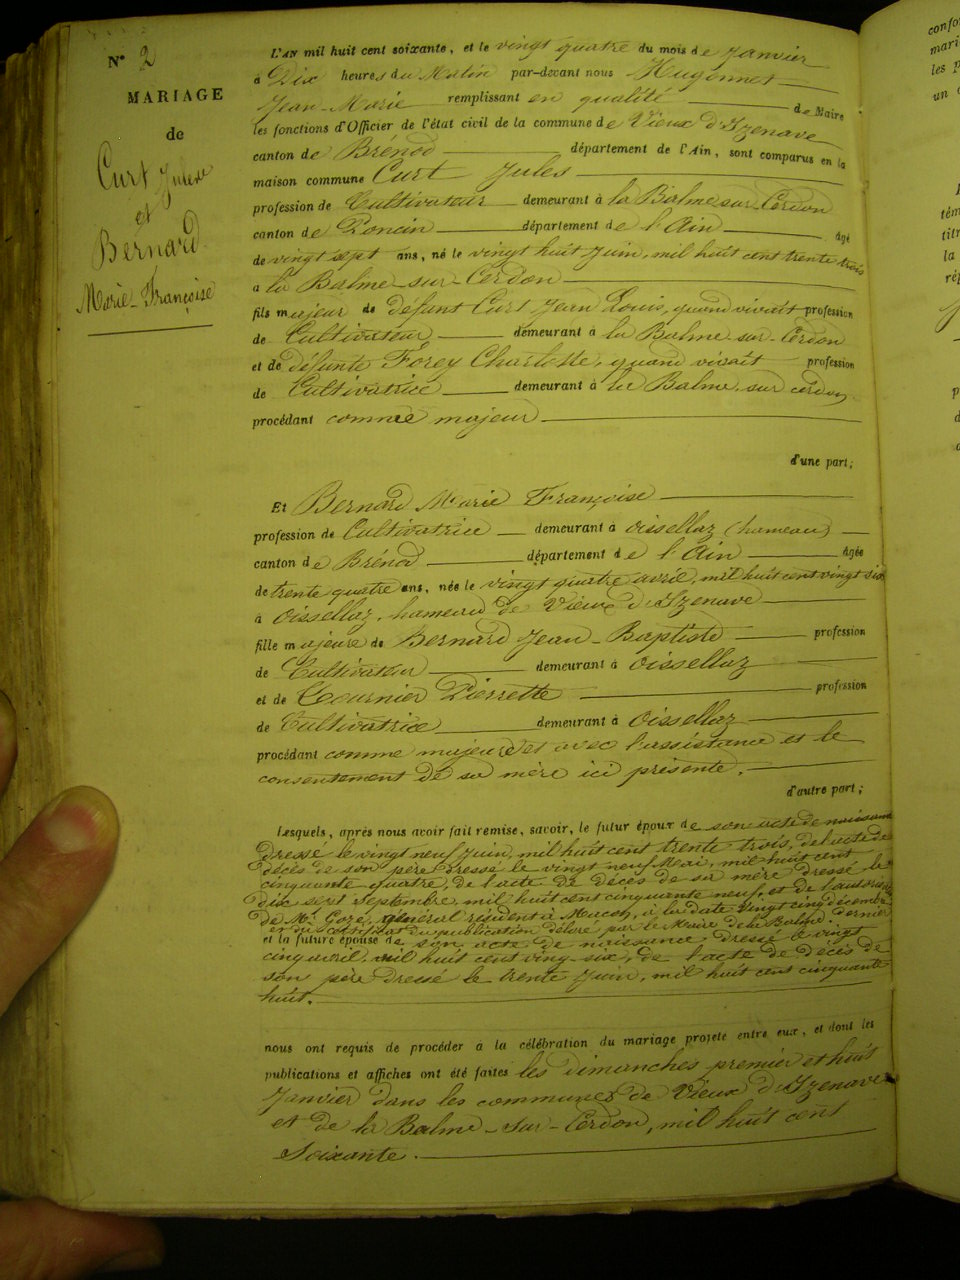 N° 2
MARIAGE
de
Curt Jules
et
Bernard
Marie-Françoise
L'AN mil huit cent soixante, et le vingt quatre du mois de Janvier
à Dix heures du Matin par-devant nous Hugonnet
Jean-Marie remplissant en qualité de Maire
les fonctions d'Officier de l'état civil de la commune de Vieux d'Izenave
canton de Brénod département de l'Ain, sont comparus en la
maison commune Curt Jules
profession de Cultivateur demeurant à la Balme sur-Cerdon
canton de Poncin département de l'Ain âgé
de vingt sept ans, né le vingt huit Juin, mil huit cent trente trois
à la Balme-sur-Cerdon
fils majeur de défunt Curt Jean Louis, quand vivait profession
de Cultivateur demeurant à la Balme-sur-Cerdon
et de défunte Forey Charlotte, quand vivait profession
de Cultivatrice demeurant à la Balme-sur cerdon
procédant comme majeur
d'une part;
Et Bernard Marie Françoise
profession de Cultivatrice demeurant à oissellaz (hameau)
canton de Brénod département de l'Ain âgée
de trente quatre ans, née le vingt quatre avril, mil huit cent vingt six
à oissellaz, hameau de Vieux d'Izenave
fille majeure de Bernard Jean-Baptiste profession
de Cultivateur demeurant à oissellaz
et de Tournier Pierrette profession
de Cultivatrice demeurant à Oissellaz
procédant comme majeure et avec l'assistance et le
consentement de sa mère ici présente.
d'autre part;
Lesquels, après nous avoir fait remise, savoir, le futur époux de son acte de naissance
dressé le vingt neuf Juin, mil huit cent trente trois, de l'acte de
décès de son père dressé le vingt neuf Mai, mil huit cent
cinquante quatre, de l'acte de décès de sa mère dressé le
dix sept Septembre, mil huit cent cinquante neuf, et de l'autorisation
de Mr. général résident à Macon, à la date vingt cinq décembre dernier
et du certificat du publication délivré par le Maire de la Balme.
et la future épouse de son acte de naissance dressé le vingt
cinq avril, mil huit cent ving-six, de l'acte de décès de
son père dressé le trente Juin, mil huit cent cinquante
huit.
nous ont requis de procéder à la célébration du mariage projeté entre eux, et dont les
publications et affiches ont été faites les dimanches premier et huit
Janvier dans les communes de Vieux d'Izenave
et de la Balme-sur-Cerdon, mil huit cent
soixante.